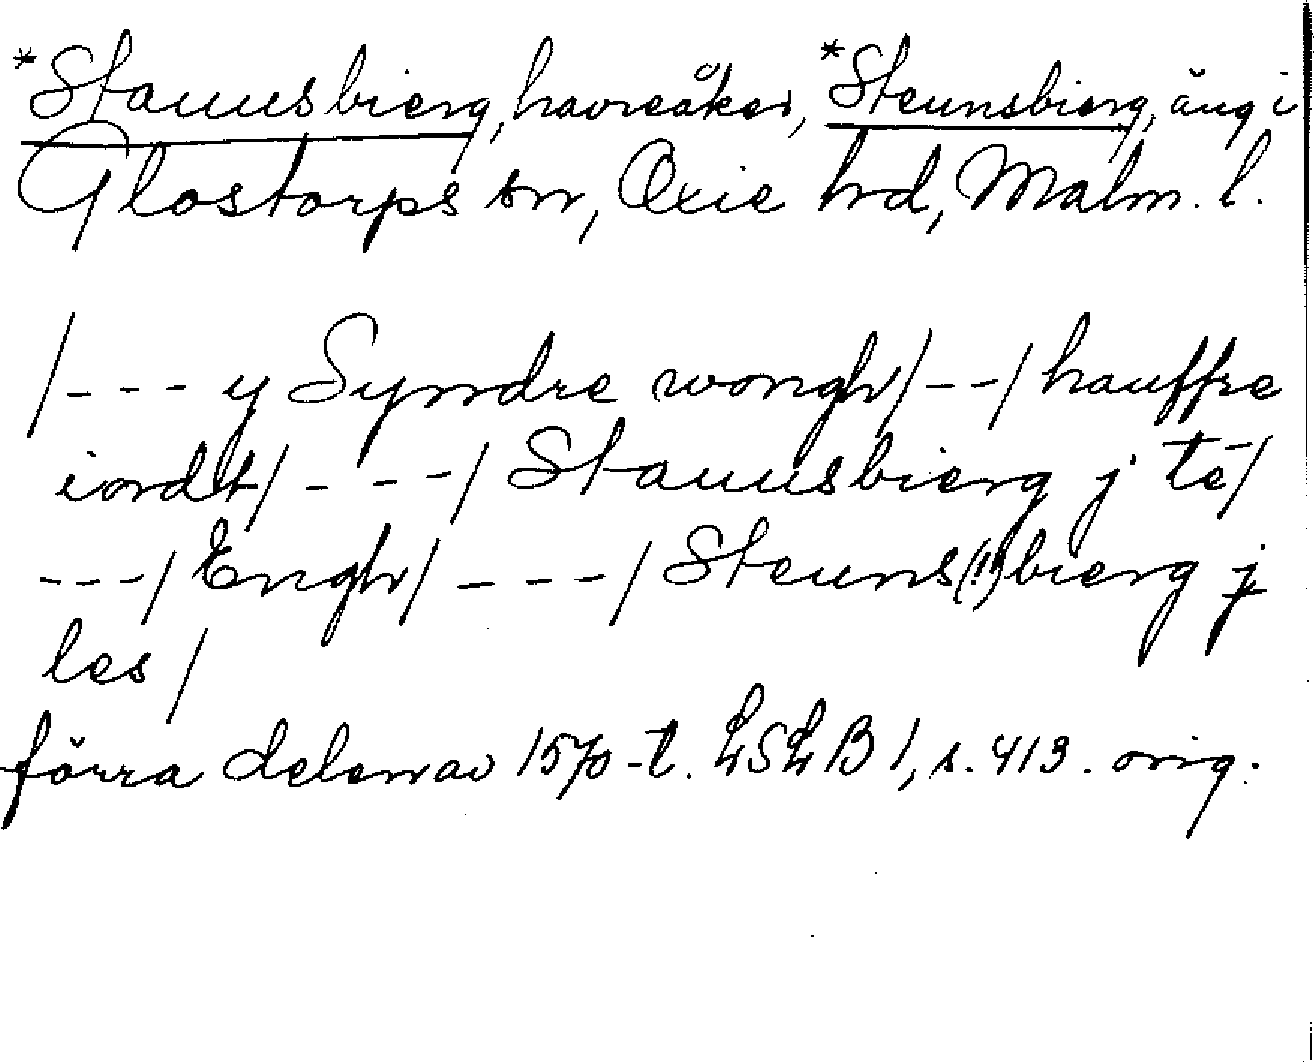 *Stauusbierg, havreåker, *Steunsbierg, äng i
Glostorps sn, Oxie hd, Malm. l.
/--- y Syndre wongh/--/hauffre
iordt/---/Stauusbierg j te/
---/Engh/---/Steuns(!)bierg j
les/
förra delen av 1570-t. LSLB1, s. 413. orig.